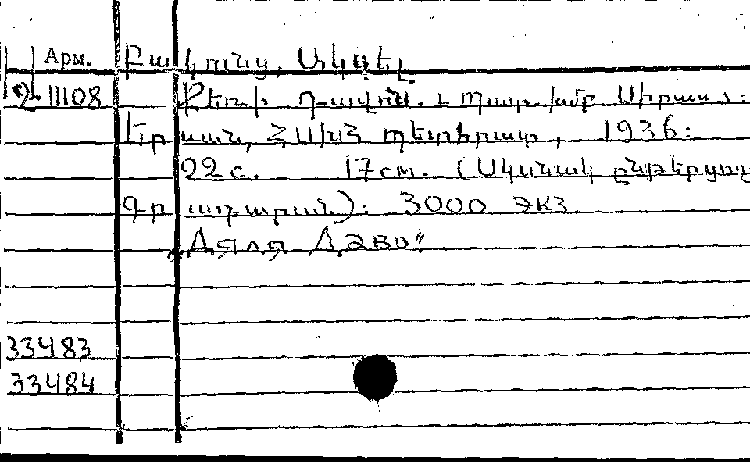 Арм. Բակունց, Ակսել
2-11108 Քեռի Դավոն. և պատ. խմբ
Երևան, ՀՍԽՀ պետհրատ, 1936:
22 с. 17 см. (Սկսնակ ընթերցող
գրադարան): 3000 экз
„Дядя Даво"
33483
33484